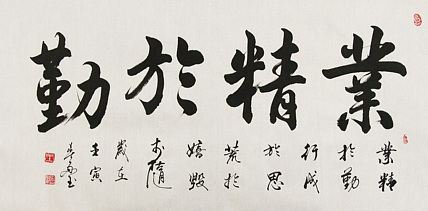 業精於勤
業精
於勤
行成
於思
荒於
嬉毀
於隨
歲在
壬寅